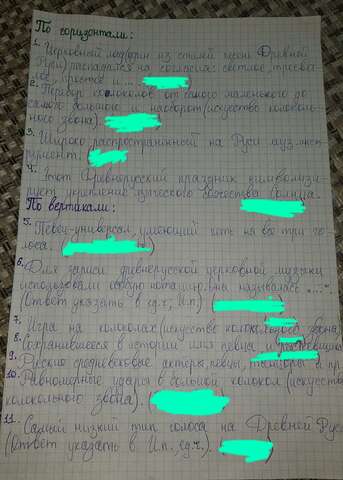 По горизонтали:
1. Церковный лад(один из стилей песни Древней
Руси) распадался на согласия: светлое, тресвя-
лое, простое и ...
2. Перебор колоколов от самого маленького до
самого большого и наоборот(искусство колоколь-
ного звона).
3. Широко распространённый на Руси муз. инст-
румент.
4. Этот Древнерусский праздник символизи-
рует укрепление языческого божества Солнца.
По вертикали:
5. Певец-универсал, умеющий петь на все три го-
лоса. (
6. Для записи древнерусской церковной музыки
использовали особую нотацию. Она называлась "...".
(Ответ указать в ед.ч., И.п.) (
7. Игра на колоколах(искусство колокольного звона)
8. Сохранившееся в истории имя певца и
9. Русские средневековые актёры, певцы, танцоры и пр.
10. Равномерные удары в большой колокол(искусство
колокольного звона). (
11. Самый низкий тип голоса на Древней Руси
(Ответ указать в И.п., ед.ч.). (